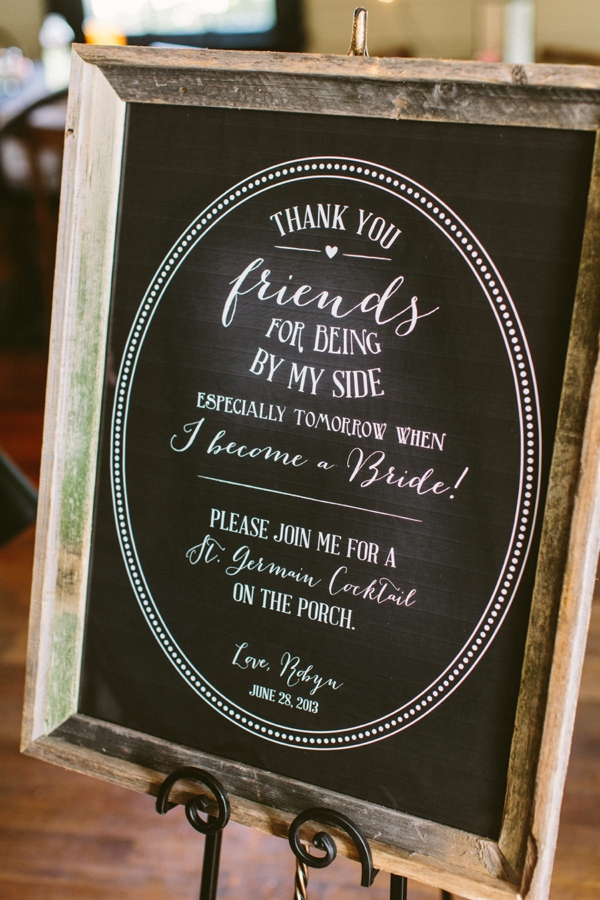 THANK YOU
friends
FOR BEING
BY MY SIDE
ESPECIALLY TOMORROW WHEN
I become a Bride!
PLEASE JOIN ME FOR A
St. Germain Cocktail
ON THE PORCH.
Love, Robyn
JUNE 28, 2013